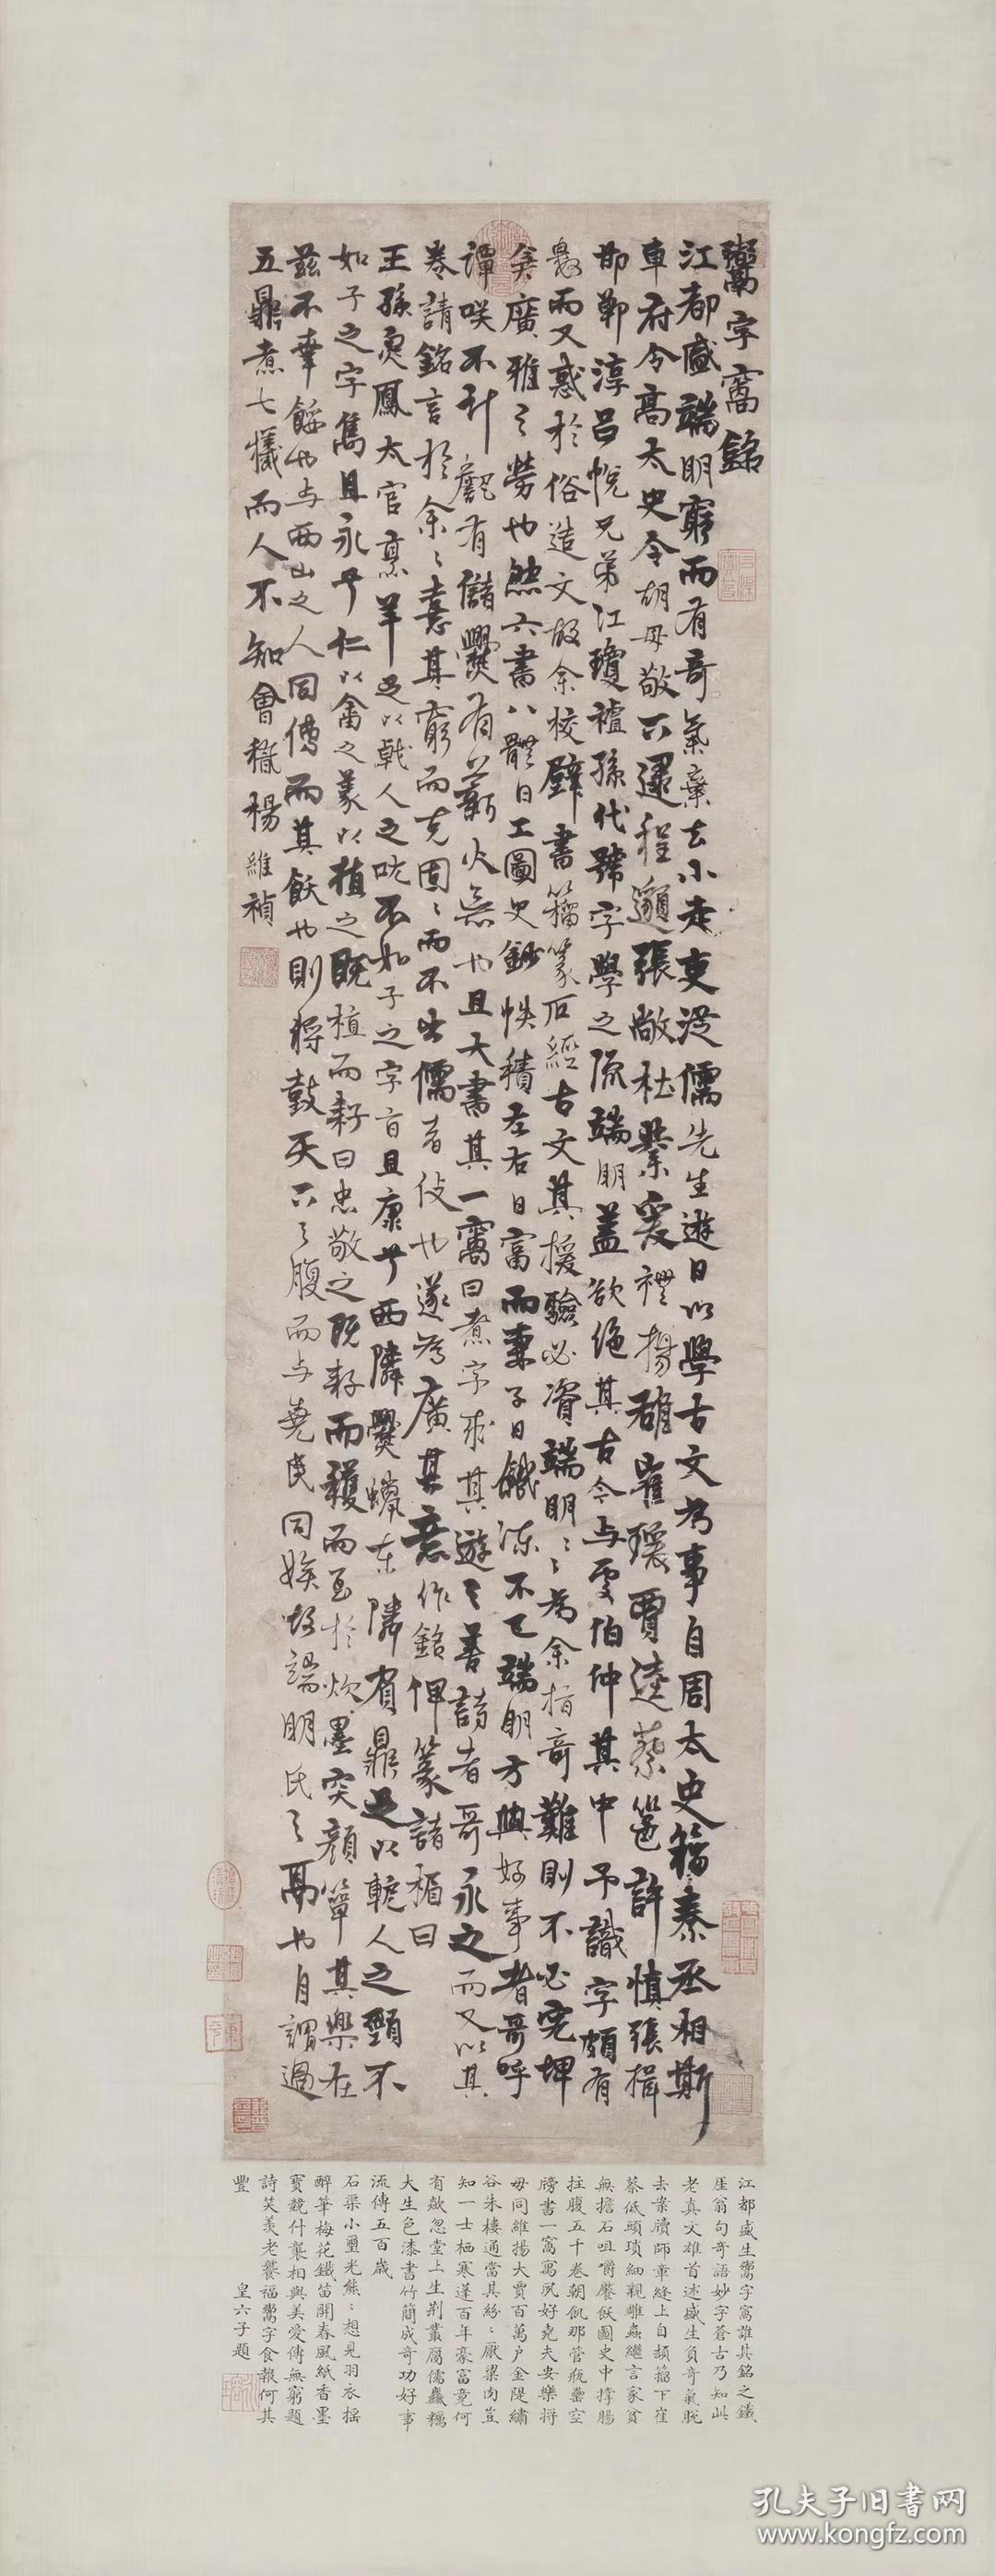 鬻字窩銘
江都盛端明窮而有奇氣棄去小走吏從儒先生遊日以學古文為事自周太史籀秦丞相斯
車府令高太史令胡毋敬下逮程邈張敞杜業爰禮揚雄崔瑗賈逵蔡邕許慎張揖
邯鄲淳呂忱兄弟江瓊祖孫代號字學之流端明蓋欲絕其古今与雯伯仲其中予識字頗有
而又惑於俗造文故余校壁書籀篆石經古文其援驗必資端明〻為余指奇難則不必究埤
廣雅之勞也然六書八體日工圖史鈔帙積左右日富而妻子日餓凍不已端明方與好事者哥呼
譚咲不計甑有儲爨有薪火無也且大書其一窩曰煮字求其遊之善詩者哥永之而又以其
卷請銘言於余〻憙其窮而克固〻而不出儒者伎也遂為廣其意作銘俾篆諸楣曰
王孫炰鳳太官烹羊足以戟人之吭不如子之字旨且康兮西隣爨蠟東隣有鼎足以軶人之頸不
如子之字雋且永兮仁以菑之義以植之既植而耔曰忠敬之既耔而穫而至於炊墨突顏簞其樂在
茲不幸餒也与西山之人同傳而其飫也則將鼓天下之腹而与堯民同娭故端明氏之鬲也自謂過
五鼎煮七犧而人不知會稽楊維禎
江都盛生鬻字窩誰其銘之鐵
厓翁句奇語妙字蒼古乃知此
老真文雄首述盛生負奇氣脫
去案牘師章縫上自頡籀下崔
蔡低頭瑣細親雕蟲繼言家貧
無擔石咀嚼饜飫圖史中撐腸
拄腹五千卷朝飢那管瓶罍空
牓書一窩寓夙好堯夫安樂將
毋同維揚大賈百萬戶金隄繡
谷朱樓通當其紛〻厭粱肉豈
知一士栖寒蓬百年豪富竟何
有歘忽堂上生荆叢腐儒齏糲
大生色漆書竹簡成奇功好事
流傳五百歲
石渠小璽光熊〻想見羽衣揺
醉筆梅花鐵笛開春風紙香墨
寶競什襲相與美愛傳無窮題
詩笑羨老饕福鬻字食報何其
豐
皇六子題
孔夫子旧書网
www.kongfz.com